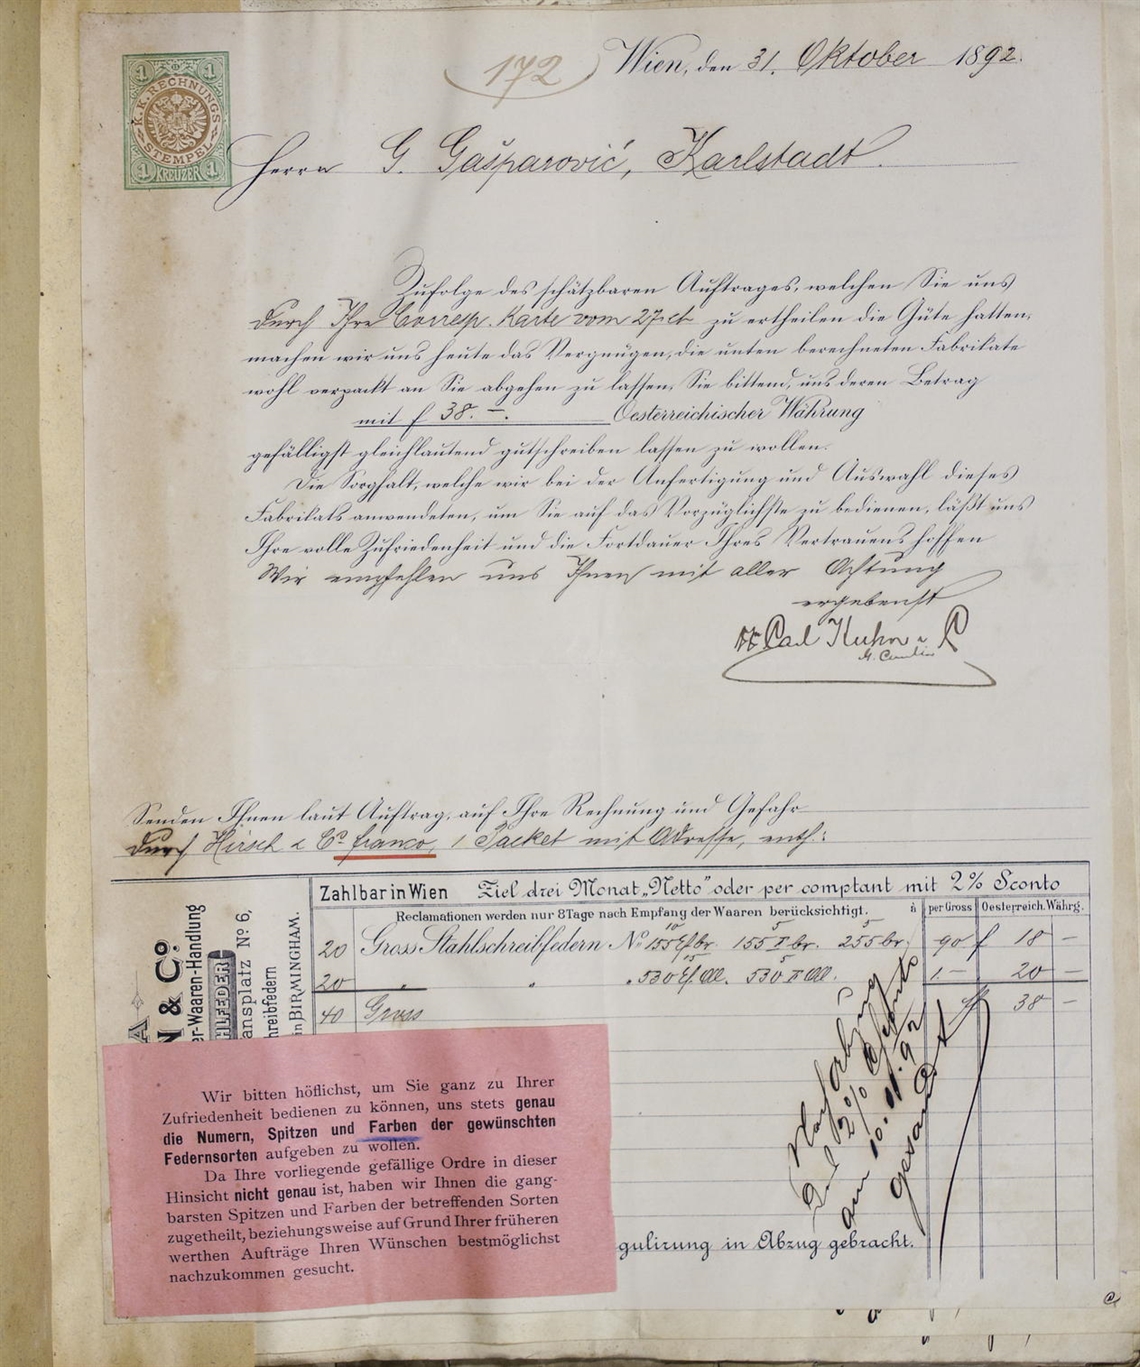 1 1
K.K. RECHNUNGS
STEMPEL
1 KREUZER 1
172
Wien, den 31. Oktober 1892.
Herrn G. Gašparović, Karlstadt.
Zufolge des schätzbaren Auftrages, welchen Sie uns
durch Ihre Corresp. Karte vom 27. ct zu ertheilen die Güte hatten,
machen wir uns heute das Vergnügen, die unten berechneten Fabrikate
wohl verpackt an Sie abgehen zu lassen, Sie bittend, uns deren Betrag
mit f 38. –. Oesterreichischer Währung
gefälligst gleichlautend gutschreiben lassen zu wollen.
Die Sorgfalt, welche wir bei der Anfertigung und Auswahl dieses
Fabrikats anwendeten, um Sie auf das Vorzüglichste zu bedienen, läßt uns
Ihre volle Zufriedenheit und die Fortdauer Ihres Vertrauens hoffen
Wir empfehlen uns Ihnen mit aller Achtung
ergebenst
Carl Kuhn & C
Senden Ihnen laut Auftrag, auf Ihre Rechnung und Gefahr
durch Hirsch & Co franco, 1 Packet mit Adresse, enth.:
Zahlbar in Wien Ziel drei Monat „Netto" oder per comptant mit 2% Sconto
Reclamationen werden nur 8 Tage nach Empfang der Waaren berücksichtigt. per Gross Oesterreich. Währg.
20 Gross Stahlschreibfedern No 155 Ef br. 10 155 F br. 5 255 br. 5 90 f 18 –
20 „ „ „ 530 Ef 15 530 F 5 1.– 20 –
40 Gross f 38 –
A
N & Co.
er-Waaren-Handlung
HLFEDER
ansplatz No 6,
hreibfedern
in BIRMINGHAM.
Nach Abzug
2% Sconto
am 10. 11. 92
gesandt
Wir bitten höflichst, um Sie ganz zu Ihrer
Zufriedenheit bedienen zu können, uns stets genau
die Numern, Spitzen und Farben der gewünschten
Federnsorten aufgeben zu wollen.
Da Ihre vorliegende gefällige Ordre in dieser
Hinsicht nicht genau ist, haben wir Ihnen die gang-
barsten Spitzen und Farben der betreffenden Sorten
zugetheilt, beziehungsweise auf Grund Ihrer früheren
werthen Aufträge Ihren Wünschen bestmöglichst
nachzukommen gesucht.
gulirung in Abzug gebracht.